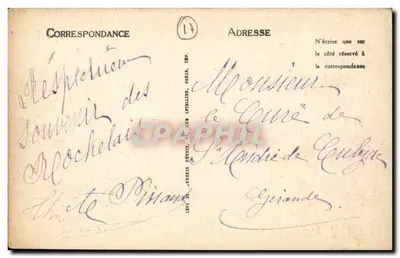 CORRESPONDANCE
17
ADRESSE
N'écrire que sur
le côté réservé à
la correspondance
Respectueux
souvenir des
Rochelais
Monsieur
le Curé de
St André de Cubzac
Gironde